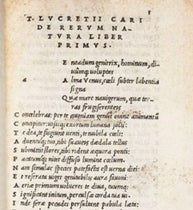 T. LVCRETII CARI
DE RERVM NA
TVRA LIBER
PRIMVS.
E neadum genitrix, hominum,
diuumq; uoluptas
A lma Venus, cœli subter labentia
signa
Quæ mare nauigerum, quæ
terras frugiferenteis
C oncelebras; per te quoniam genus omne animantum
C oncipitur, uisitq; exortum lumina solis,
T e dea, te fugiunt uenti, te nubila cœli
A duentuq; tuo, tibi suaues dædala tellus
S ubmittit flores, tibi rident æquora ponti,
P lacatumq; nitet diffuso lumine cœlum.
N am simulac species patefacta est uerna diei
E t reserata uiget genitabilis aura fauoni;
A eriæ primum uolucres te diua, tuumq;
S ignificant initum, perculsæ corda tua ui
I nde feræ pecudes persultant pabula læta,